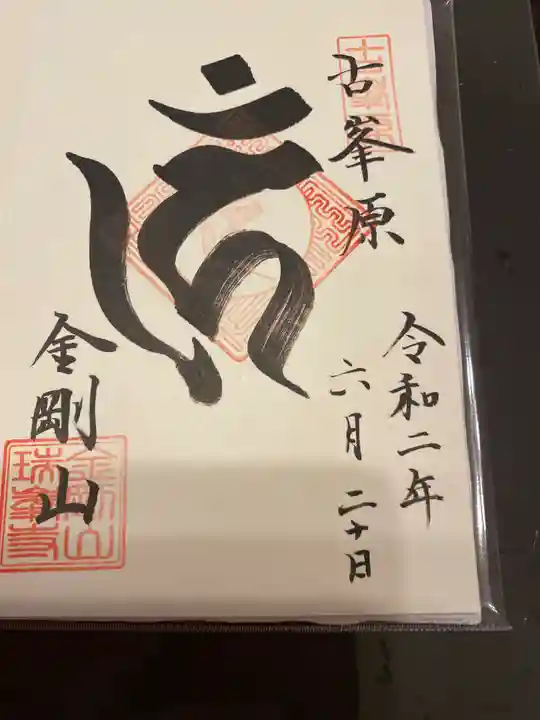 古峯原
令和二年
六月二十日
金剛山